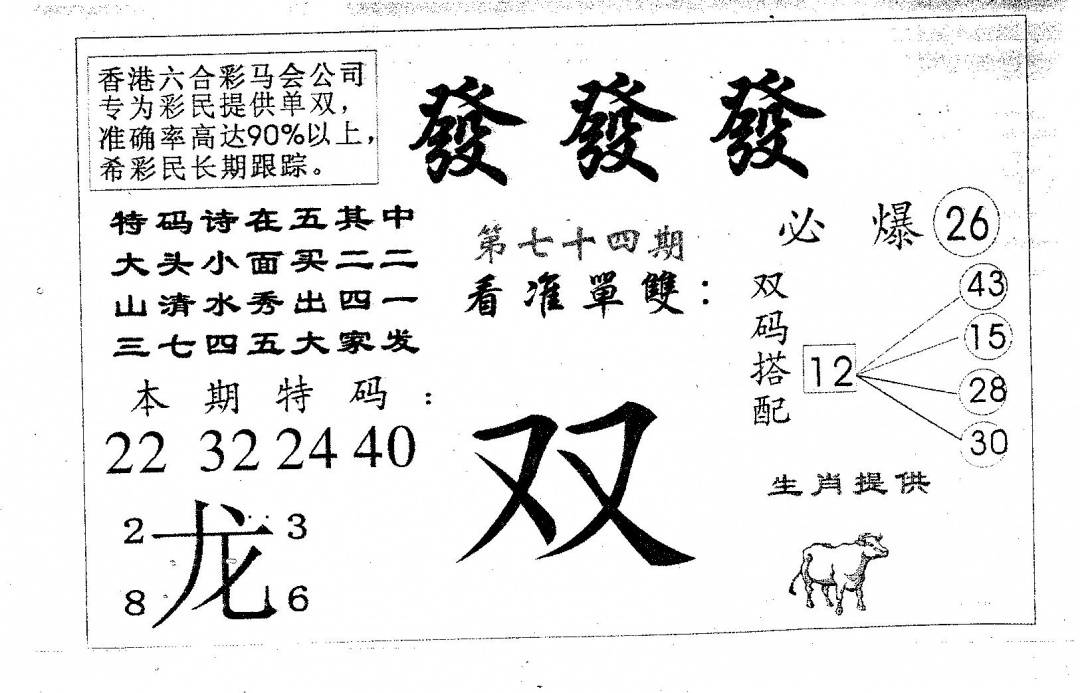 香港六合彩马会公司
专为彩民提供单双，
准确率高达90%以上，
希彩民长期跟踪。
發發發
特码诗在五其中
大头小面买二二
山清水秀出四一
三七四五大家发
第七十四期
看准單雙：
必爆26
双码搭配
12
43
15
28
30
本期特码：
22 32 24 40
双
生肖提供
2 龙 3
8 6